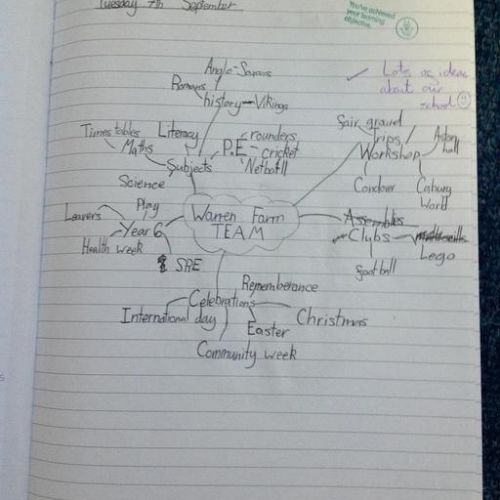 Tuesday 7th September
You've achieved
your learning
objective.
✓ Lots of ideas
about our
school
Anglo-Saxons
Romans
history - Vikings
Times tables
Maths
Literacy
Subjects
Science
P.E
rounders
cricket
Netball
Fair ground
Trips
Workshop
hall
Condover
Cadbury
World
Warren Farm
TEAM
Play
Leavers
Year 6
Health week
SRE
Assemblies
Clubs
Lego
football
Rememberance
Celebrations
International day
Christmas
Easter
Community week